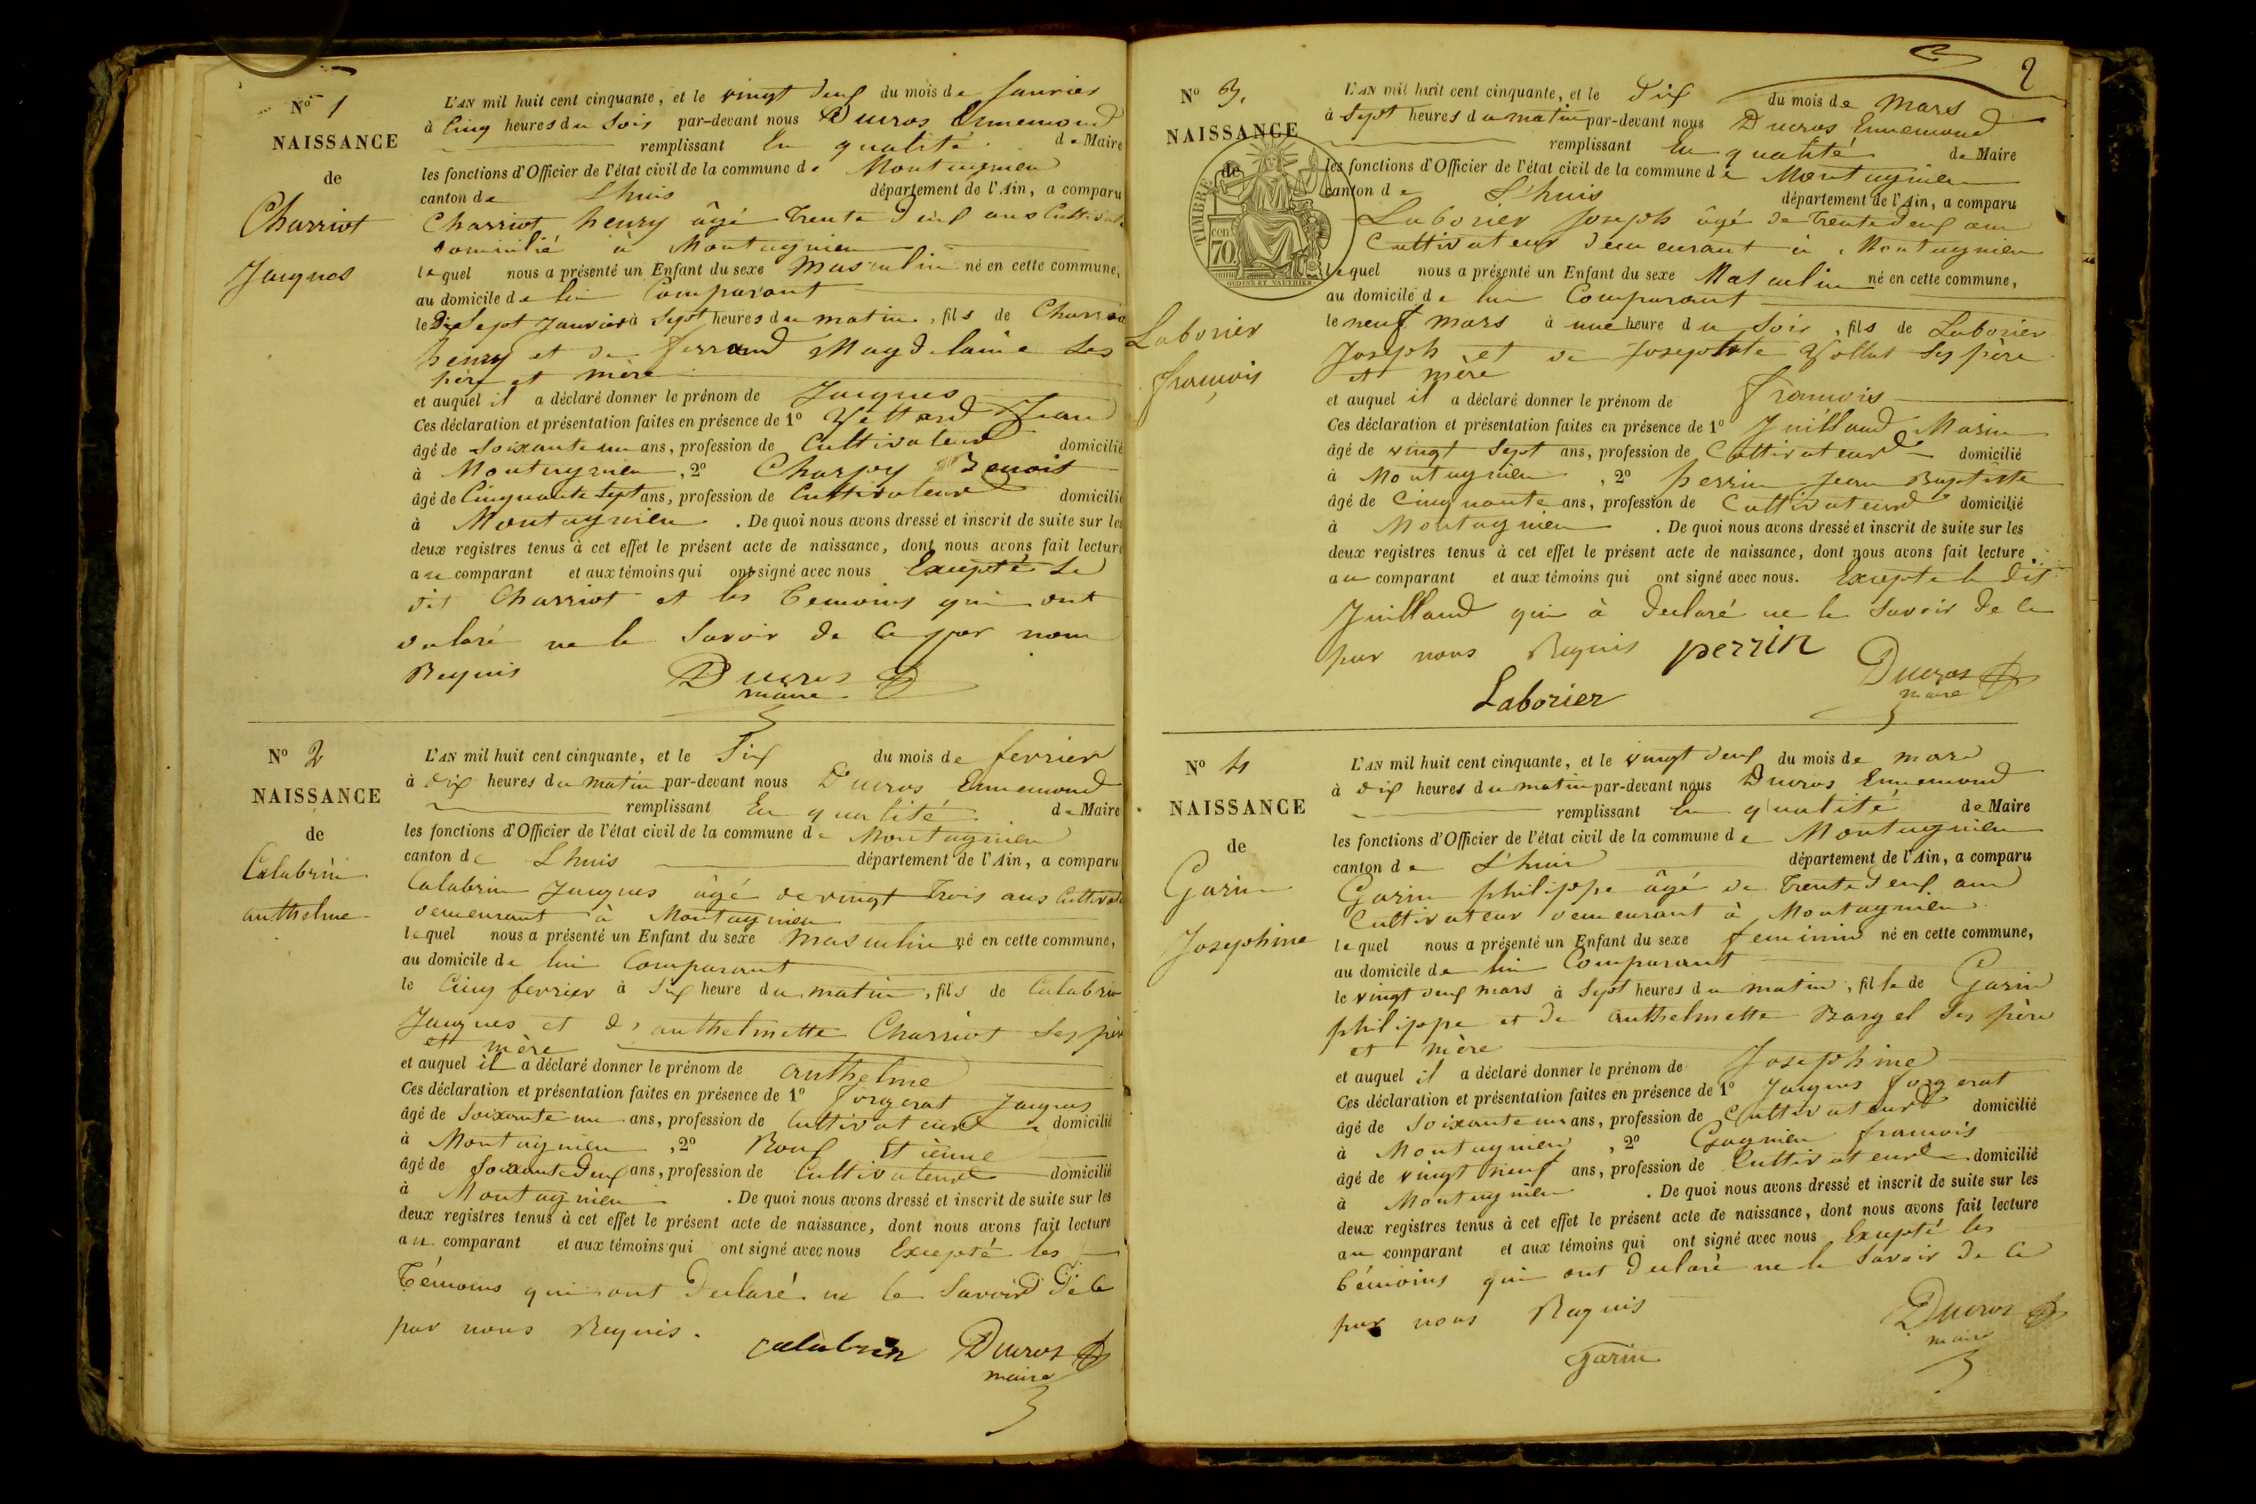 N° 1
NAISSANCE
de
Charriot
Jacques
L'AN mil huit cent cinquante, et le vingt deux du mois de Janvier
à Cinq heures du Soir par-devant nous Ducros Ennemond
remplissant En qualité de Maire
les fonctions d'Officier de l'état civil de la commune de Montagnieu
canton de Lhuis département de l'Ain, a comparu
Charriot henry âgé Trente deux ans Cultivat
domicilié à Montagnieu
lequel nous a présenté un Enfant du sexe Masculin né en cette commune,
au domicile de lui Comparant
le Dix Sept Janvier à Sept heures du matin, fils de Charriot
henry et de ferrand Magdelaine Ses
père et mère
et auquel il a déclaré donner le prénom de Jacques
Ces déclaration et présentation faites en présence de 1° Vettard Jean
âgé de Soixante un ans, profession de Cultivateur domicilié
à Montagnieu, 2° Charpy Benoit
âgé de Cinquante Sept ans, profession de Cultivateur domicilié
à Montagnieu. De quoi nous avons dressé et inscrit de suite sur les
deux registres tenus à cet effet le présent acte de naissance, dont nous avons fait lecture
au comparant et aux témoins qui ont signé avec nous Excepté Le
dit Charriot et les Témoins qui ont
déclaré ne le Savoir de Ce par nous
Requis Ducros
maire
N° 2
NAISSANCE
de
Calabrin
anthelme
L'AN mil huit cent cinquante, et le Six du mois de fevrier
à dix heures du matin par-devant nous Ducros Ennemond
remplissant En qualité de Maire
les fonctions d'Officier de l'état civil de la commune de Montagnieu
canton de Lhuis département de l'Ain, a comparu
Calabrin Jacques âgé de vingt Trois ans Cultivat
demeurant à Montagnieu
lequel nous a présenté un Enfant du sexe Masculin né en cette commune,
au domicile de lui Comparant
le Cinq fevrier à Six heure du matin, fils de Calabrin
Jacques et de anthelmette Charriot Ses père
et mère
et auquel il a déclaré donner le prénom de anthelme
Ces déclaration et présentation faites en présence de 1° Forgerat Jacques
âgé de Soixante un ans, profession de Cultivateur domicilié
à Montagnieu, 2° Roux Etienne
âgé de Soixante Deux ans, profession de Cultivateur domicilié
à Montagnieu. De quoi nous avons dressé et inscrit de suite sur les
deux registres tenus à cet effet le présent acte de naissance, dont nous avons fait lecture
au comparant et aux témoins qui ont signé avec nous Excepté les
Témoins qui ont Declaré ne le Savoir de Ce
par nous Requis.
calabrin Ducros
maire
2
N° 3.
NAISSANCE
de
TIMBRE
cen
70
Laborier
françois
L'AN mil huit cent cinquante, et le Dix du mois de Mars
à Sept heures du matin par-devant nous Ducros Ennemond
remplissant En qualité de Maire
les fonctions d'Officier de l'état civil de la commune de Montagnieu
canton de L'huis département de l'Ain, a comparu
Laborier Joseph âgé de Trente deux ans
Cultivateur demeurant à Montagnieu
lequel nous a présenté un Enfant du sexe Masculin né en cette commune,
au domicile de lui Comparant
le neuf mars à une heure du Soir, fils de Laborier
Joseph et de Josephte Vollet Ses père
et mère
et auquel il a déclaré donner le prénom de François
Ces déclaration et présentation faites en présence de 1° Juilland Marin
âgé de vingt Sept ans, profession de Cultivateur domicilié
à Montagnieu, 2° perrin Jean Baptiste
âgé de Cinquante ans, profession de Cultivateur domicilié
à Montagnieu. De quoi nous avons dressé et inscrit de suite sur les
deux registres tenus à cet effet le présent acte de naissance, dont nous avons fait lecture
au comparant et aux témoins qui ont signé avec nous. Excepte le Dit
Juilland qui à Declaré ne le Savoir de Ce
par nous Requis perrin Ducros
maire
Laborier
N° 4
NAISSANCE
de
Garin
Josephine
L'AN mil huit cent cinquante, et le vingt deux du mois de mars
à dix heures du matin par-devant nous Ducros Ennemond
remplissant En qualité de Maire
les fonctions d'Officier de l'état civil de la commune de Montagnieu
canton de L'huis département de l'Ain, a comparu
Garin philippe âgé de Trente Deux ans
Cultivateur demeurant à Montagnieu
lequel nous a présenté un Enfant du sexe feminin né en cette commune,
au domicile de lui Comparant
le vingt deux mars à Sept heures du matin, fille de Garin
philippe et de anthelmette Bargel Ses père
et mère
et auquel il a déclaré donner le prénom de Josephine
Ces déclaration et présentation faites en présence de 1° Jacques Forgerat
âgé de Soixante un ans, profession de Cultivateur domicilié
à Montagnieu, 2° Gagnieu françois
âgé de vingt neuf ans, profession de Cultivateur domicilié
à Montagnieu. De quoi nous avons dressé et inscrit de suite sur les
deux registres tenus à cet effet le présent acte de naissance, dont nous avons fait lecture
au comparant et aux témoins qui ont signé avec nous Excepté les
Témoins qui ont Declaré ne le Savoir de Ce
par nous Requis Ducros
maire
garin